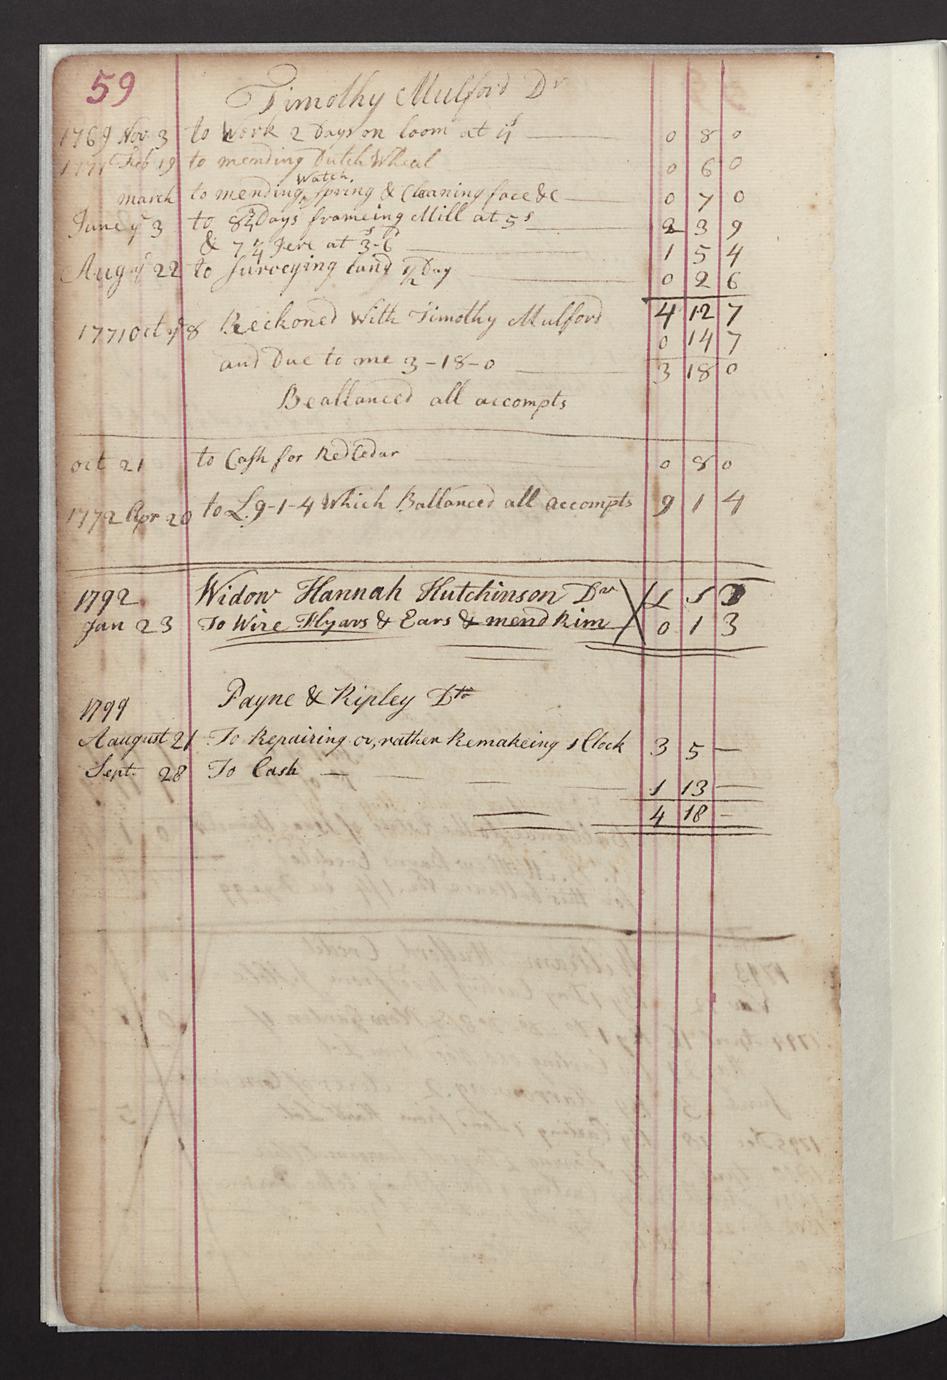 59
Timothy Mulford Dr
1769 Nov 3 to Work 2 Days on loom at 4s 0 8 0
1771 Feb 19 to mending Dutch Wheal 0 6 0
Watch
march to mending Spring & Cleaning face &c 0 7 0
June ye 3 to 8 3/4 Days frameing Mill at 5s 2 3 9
& 7 1/4 Jere at 3s-6d 1 5 4
Augt ye 22 to Surveying land 1/2 Day 0 2 6
4 12 7
1771 Oct ye 8 Reckoned With Timothy Mulford 0 14 7
and Due to me 3-18-0 3 18 0
Beallanced all accompts
oct 21 to Cash for Red Cedar 0 8 0
1772 Apr 20 to L.9-1-4 Which Ballanced all accompts 9 1 4
1792 Widow Hannah Hutchinson Dr L S D
Jan 23 To Wire Flyars & Ears & mend Rim 0 1 3
1799 Payne & Ripley Dtr
Aaugust 21 To Repairing or, rather Remakeing 1 Clock 3 5 —
Sept. 28 To Cash — — — 1 13 —
4 18 —